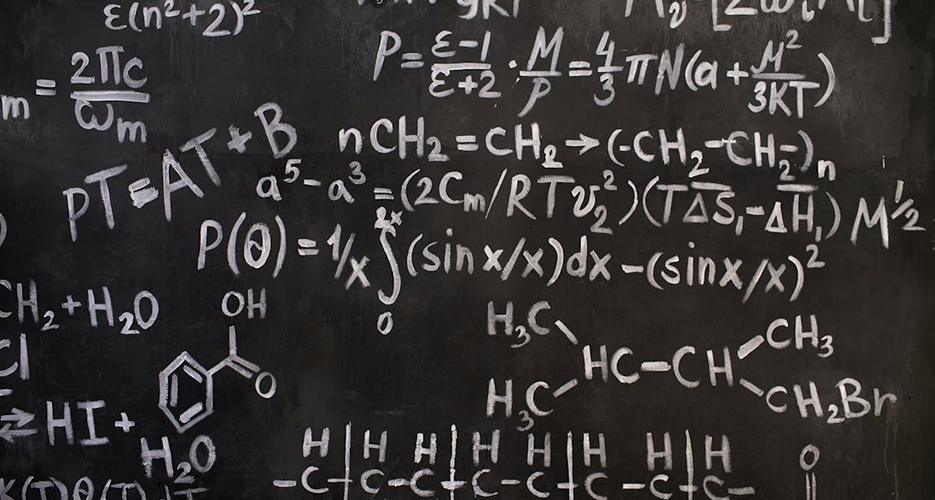 ε(n²+2)²
m = 2πc/ωm
P = ε-1/ε+2 · M/p = 4/3 πN(a + M²/3KT)
pT = AT + B
nCH₂ = CH₂ → (-CH₂-CH₂-)n
a⁵ - a³ = (2Cm/RTv₂²)(TΔS₁-ΔH₁) M^½
P(θ) = 1/x ∫₀²ˣ (sin x/x)dx - (sinx/x)²
CH₂ + H₂O
Cl
OH
O
H₃C
HC - CH
CH₃
H₃C
CH₂Br
⇄ HI +
H₂O
H H H H H H H H
-C-C-C-C-C-C-C-C-
O
K(T)θ(T)